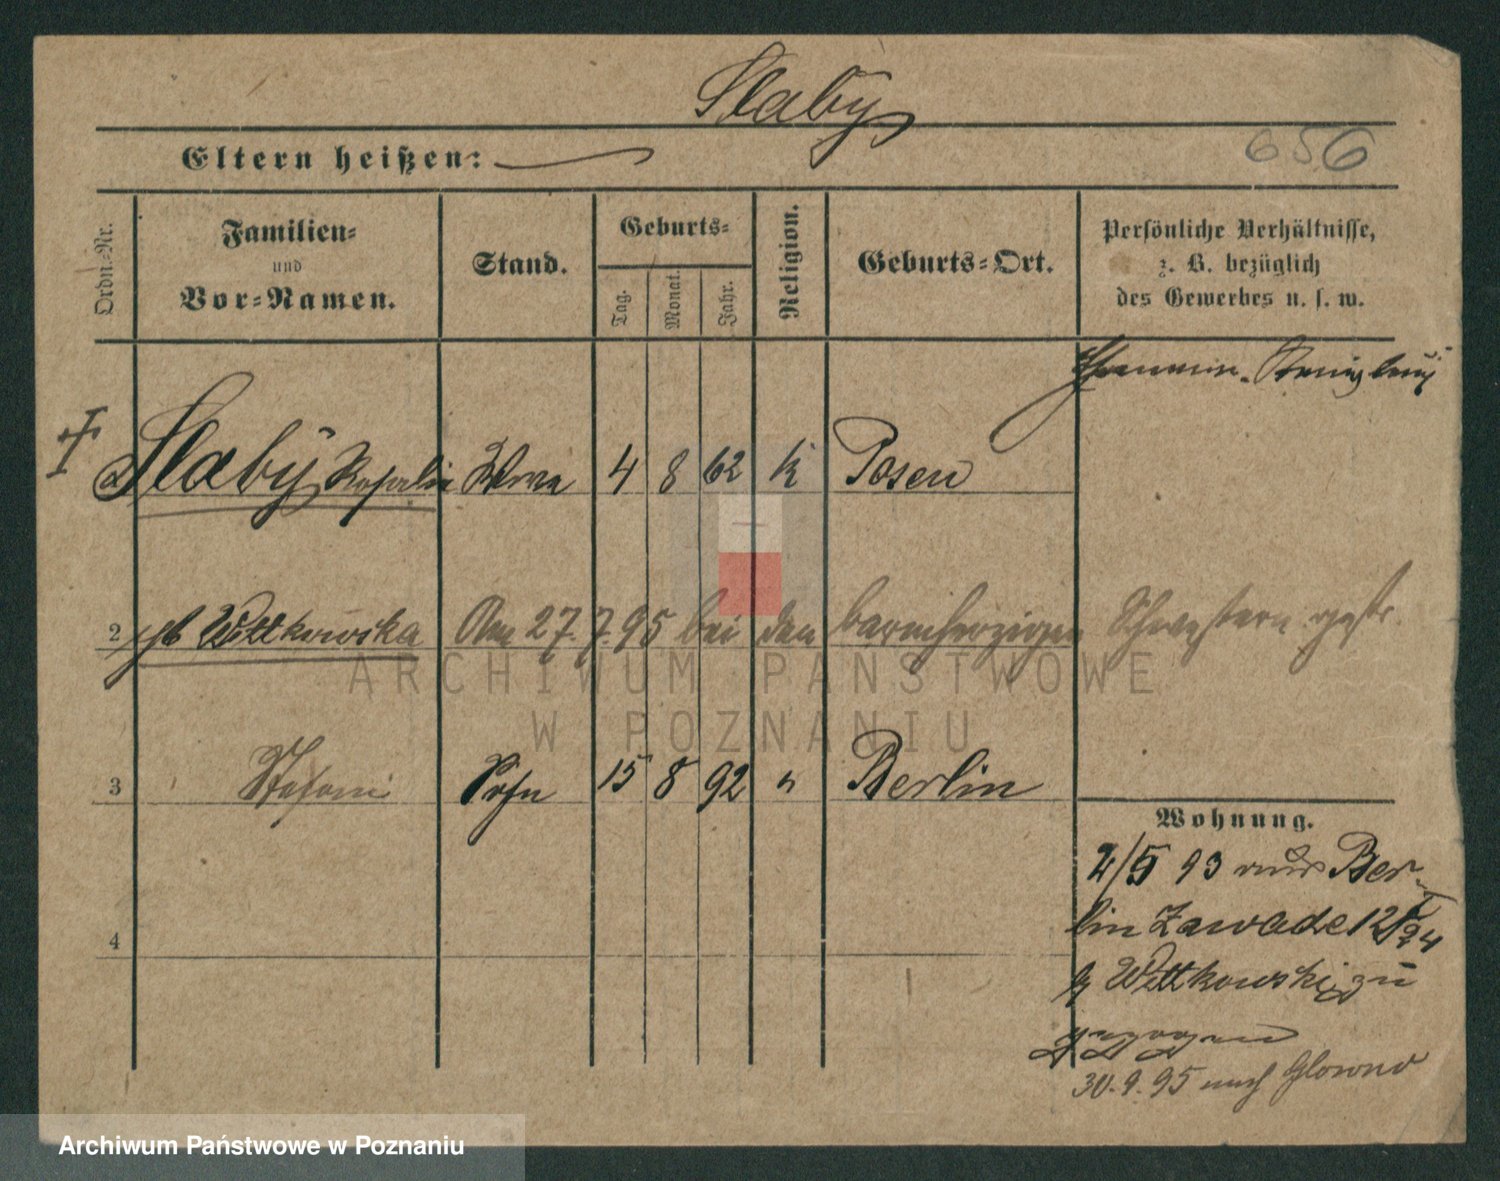 Slaby
Eltern heißen:
656
Ordn.-Nr.
Familien-
und
Vor-Namen.
Stand.
Geburts-
Tag.
Monat.
Jahr.
Religion.
Geburts-Ort.
Persönliche Verhältnisse,
z. B. bezüglich
des Gewerbes u. s. w.
Slaby Rosalie Wwe 4 8 62 k Posen
2 geb Wittkowska Am 27.7.95 bei den barmherzigen Schwestern gestr.
3 Stefan Sohn 15 8 92 " Berlin
Wohnung.
2/5 93 aus Ber-
lin Zawade 12
b Wittkowski zu
gezogen
4
30.9.95 nach Glowno
ARCHIWUM PAŃSTWOWE
W POZNANIU
Archiwum Państwowe w Poznaniu